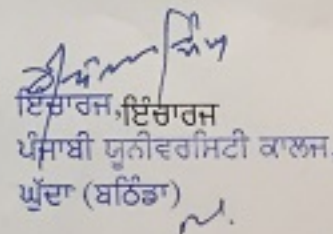 ਇੰਚਾਰਜ,ਇੰਚਾਰਜ
ਪੰਜਾਬੀ ਯੂਨੀਵਰਸਿਟੀ ਕਾਲਜ
ਘੁੱਦਾ (ਬਠਿੰਡਾ)